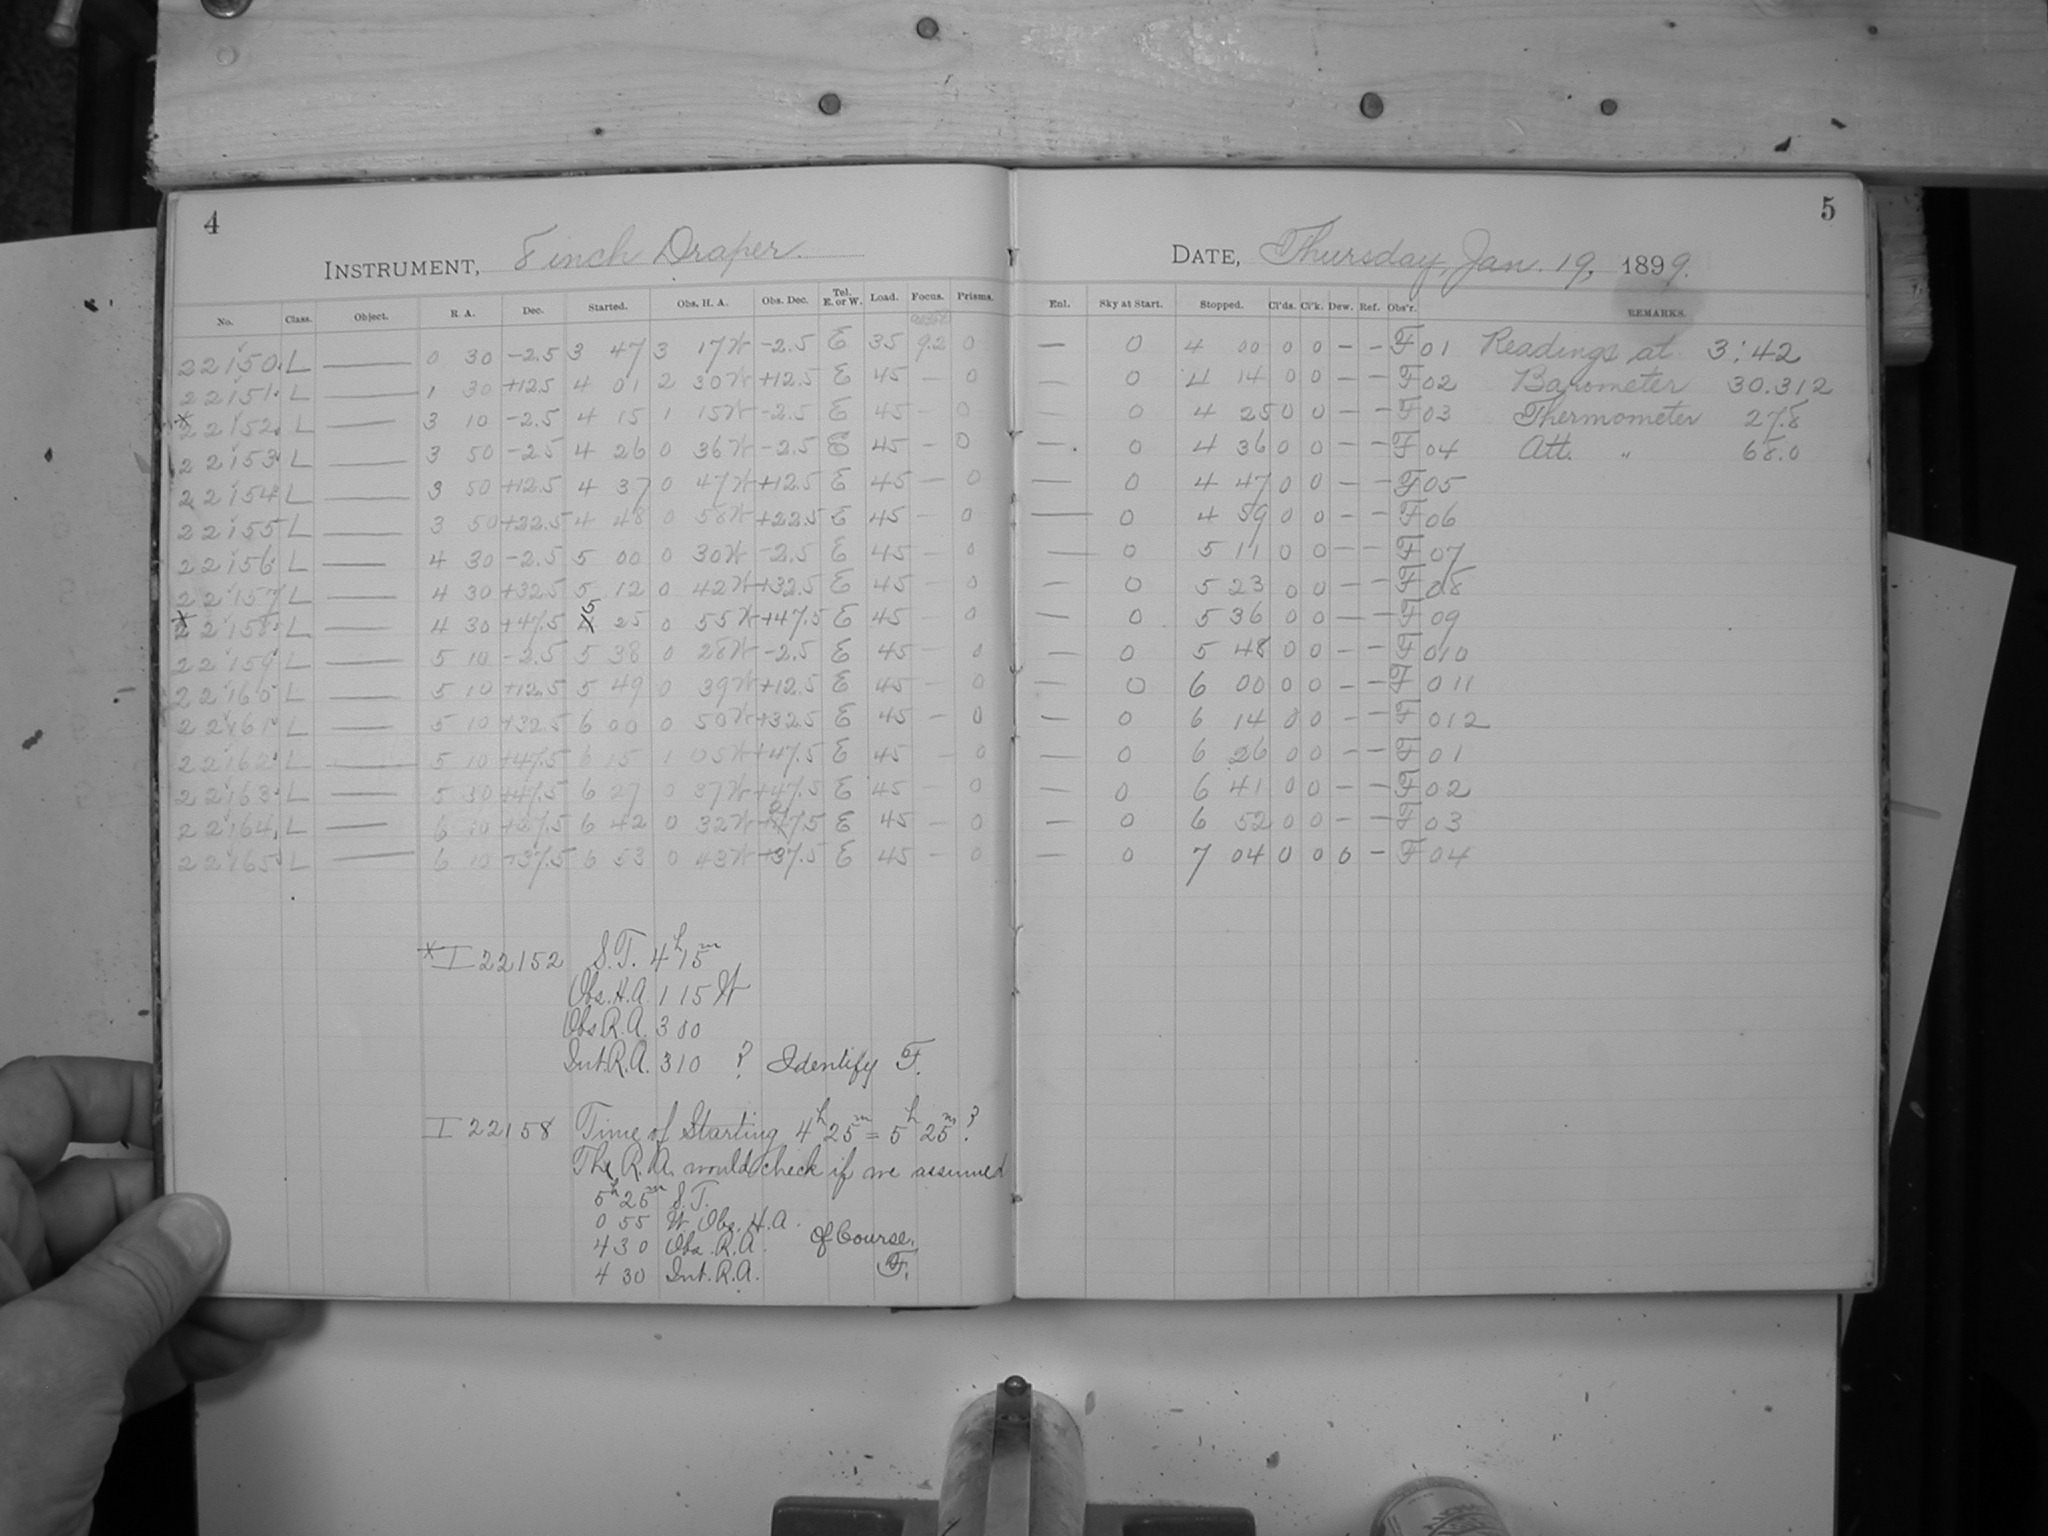 4
INSTRUMENT, 8 inch Draper.
No. Class. Object. R. A. Dec. Started. Obs. H. A. Obs. Dec. Tel. E. or W. Load. Focus. Prisms.
22150 L — 0 30 -2.5 3 47 3 17W -2.5 E 35 9.2 0
22151 L — 1 30 +12.5 4 01 2 30W +12.5 E 45 — 0
*22152 L — 3 10 -2.5 4 15 1 15W -2.5 E 45 — 0
22153 L — 3 50 -2.5 4 26 0 36W -2.5 E 45 — 0
22154 L — 3 50 +12.5 4 37 0 47W +12.5 E 45 — 0
22155 L — 3 50 +22.5 4 48 0 58W +22.5 E 45 — 0
22156 L — 4 30 -2.5 5 00 0 30W -2.5 E 45 — 0
22157 L — 4 30 +32.5 5 12 0 42W +32.5 E 45 — 0
*22158 L — 4 30 +47.5 5 25 0 55W +47.5 E 45 — 0
22159 L — 5 10 -2.5 5 38 0 28W -2.5 E 45 — 0
22160 L — 5 10 +12.5 5 49 0 39W +12.5 E 45 — 0
22161 L — 5 10 +32.5 6 00 0 50W +32.5 E 45 — 0
22162 L — 5 10 +47.5 6 15 1 05W +47.5 E 45 — 0
22163 L — 5 30 +47.5 6 27 0 37W +47.5 E 45 — 0
22164 L — 6 10 6 42 0 32W E 45 — 0
22165 L — 6 10 +37.5 6 53 0 43W +37.5 E 45 — 0
*I 22152 S.T. 4h 15m
Obs. H.A. 1 15 W
Obs R.A. 3 00
Int. R.A. 3 10 ? Identify F.
I 22158 Time of Starting 4h 25m = 5h 25m ?
The R.A. would check if we assumed
5h 25m S.T.
0 55 W Obs. H.A.
4 30 Obs. R.A. Of Course.
4 30 Int. R.A. F.
5
DATE, Thursday, Jan. 19, 1899.
Enl. Sky at Start. Stopped. Cl'ds. Cl'k. Dew. Ref. Obs'r. REMARKS.
— 0 4 00 0 0 — — F 01 Readings at 3:42
— 0 4 14 0 0 — — F 02 Barometer 30.312
— 0 4 25 0 0 — — F 03 Thermometer 27.8
— 0 4 36 0 0 — — F 04 Att. " 68.0
— 0 4 47 0 0 — — F 05
— 0 4 59 0 0 — — F 06
— 0 5 11 0 0 — — F 07
— 0 5 23 0 0 — — F 08
— 0 5 36 0 0 — — F 09
— 0 5 48 0 0 — — F 010
— 0 6 00 0 0 — — F 011
— 0 6 14 0 0 — — F 012
— 0 6 26 0 0 — — F 01
— 0 6 41 0 0 — — F 02
— 0 6 52 0 0 — — F 03
— 0 7 04 0 0 0 — F 04